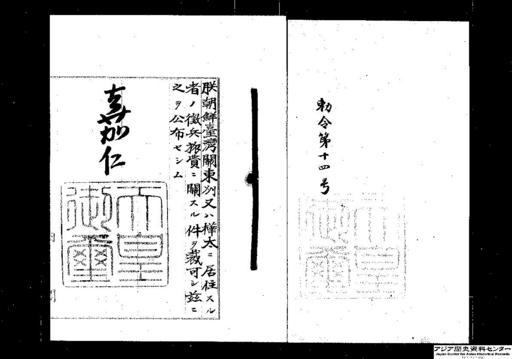 勅令第十四号
朕朝鮮臺灣關東州又ハ樺太ニ居住スル
者ノ徴兵旅費ニ關スル件ヲ裁可シ茲ニ
之ヲ公布セシム
嘉仁
天皇
御璽
アジア歴史資料センター
Japan Center for Asian Historical Records